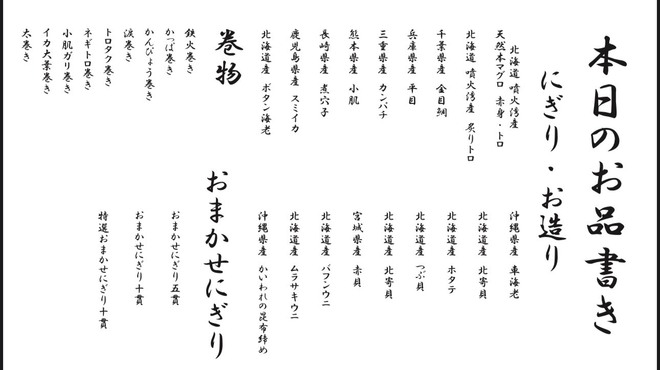 本日のお品書き
にぎり・お造り
北海道 噴火湾産
天然本マグロ 赤身・トロ
北海道 噴火湾産 炙りトロ
千葉県産 金目鯛
兵庫県産 平目
三重県産 カンパチ
熊本県産 小肌
長崎県産 煮穴子
鹿児島県産 スミイカ
北海道産 ボタン海老
沖縄県産 車海老
北海道産 北寄貝
北海道産 ホタテ
北海道産 つぶ貝
北海道産 北寄貝
宮城県産 赤貝
北海道産 バフンウニ
北海道産 ムラサキウニ
沖縄県産 かいわれの昆布締め
巻物
鉄火巻き
かっぱ巻き
かんぴょう巻き
涙巻き
トロタク巻き
ネギトロ巻き
小肌ガリ巻き
イカ大葉巻き
太巻き
おまかせにぎり
おまかせにぎり五貫
おまかせにぎり十貫
特選おまかせにぎり十貫